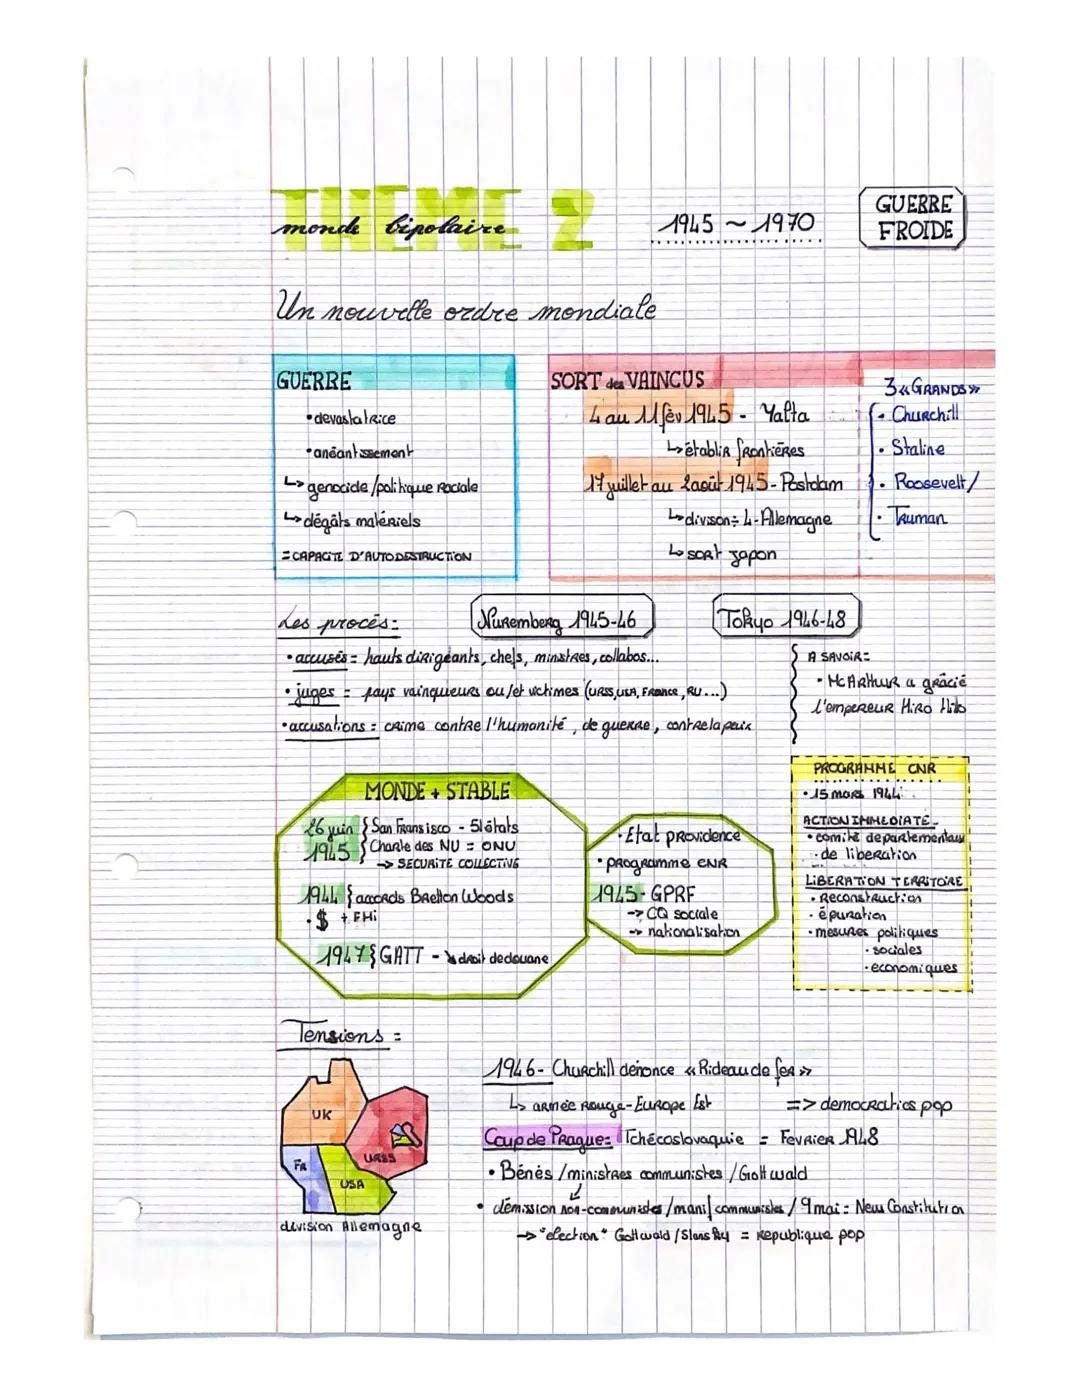 THEME 2
monde bipolaire
1945 ~ 1970
GUERRE
FROIDE
Un nouvelle ordre mondiale
GUERRE
• devastatrice
• anéantissement
↳ genocide/politique raciale
↳ dégâts matériels
= CAPACITE D'AUTODESTRUCTION
SORT des VAINCUS
4 au 11 fév 1945 - Yalta
↳ établir frontières
17 juillet au 2 août 1945 - Postdam
↳ divison ÷ 4 - Allemagne
↳ sort japon
3 « GRANDS »
• Churchill
• Staline
• Roosevelt/
• Truman
Les procès :
Nuremberg 1945-46
Tokyo 1946-48
• accusés = hauts dirigeants, chefs, ministres, collabos...
• juges = pays vainqueurs ou/et victimes (URSS, USA, France, RU...)
• accusations = crime contre l'humanité, de guerre, contre la paix
A SAVOIR =
• McARthur a grâcié
l'empereur Hiro Hito
MONDE + STABLE
26 juin 1945 } San Fransisco - 51 états
Charte des NU = ONU
→ SECURITÉ COLLECTIVE
1944 { accords Bretton Woods
• $ + FMi
1947 } GATT - ↘ droit de douane
• Etat providence
• programme CNR
1945 - GPRF
→ CQ sociale
→ nationalisation
PROGRAMME CNR
• 15 mars 1944
ACTION IMMEDIATE
• comité departementaux
de liberation
LIBERATION TERRITOIRE
• Reconstruction
• épuration
• mesures politiques
• sociales
• economiques
Tensions :
UK
URSS
FR
USA
division Allemagne
1946 - Churchill dénonce « Rideau de fer »
↳ armée Rouge - Europe Est => democraties pop
Coup de Prague = Tchécoslovaquie = Fevrier 1948
• Bénès / ministres communistes / Gottwald
• démission non-communistes / manif communistes / 9 mai = New Constitution
→ "election" Gottwald / Slansky = republique pop